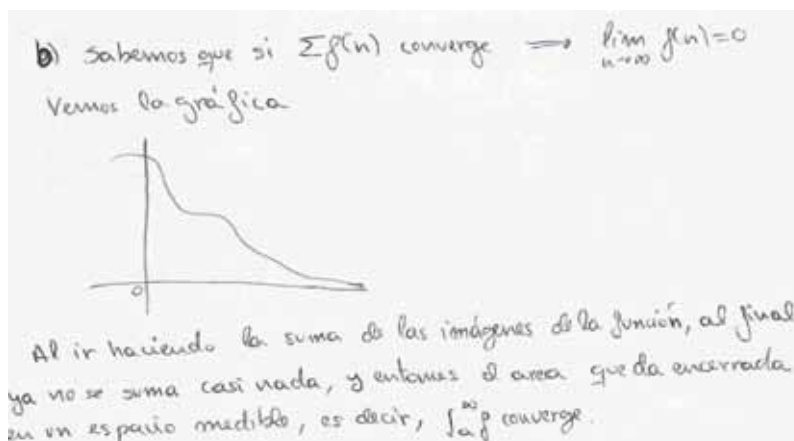 b) Sabemos que si Σf(n) converge ⟹ lim n→∞ f(n)=0
Vemos la gráfica
0
Al ir haciendo la suma de las imágenes de la función, al final
ya no se suma casi nada, y entonces el area queda encerrada
en un espacio medible, es decir, ∫_a^∞ f converge.